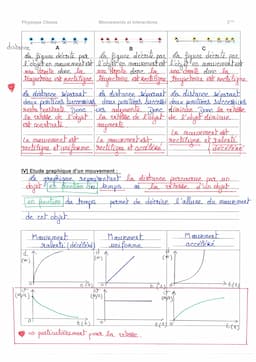 Physique Chimie Mouvements et interactions 3ème
distance
A B C
La figure décrite par La figure décrite par La figure décrite par
l'objet en mouvement est l'objet en mouvement est l'objet en mouvement est
une droite donc la une droite donc la une droite donc la
trajectoire est rectiligne. trajectoire est rectiligne. trajectoire est rectiligne.
La distance séparant La distance séparant La distance séparant
deux positions successives deux positions successives deux positions successives
la vitesse de l'objet la vitesse de l'objet la vitesse
est constante. augmente. de l'objet diminue.
Le mouvement est Le mouvement est Le mouvement est
rectiligne et uniforme. rectiligne et accéléré. rectiligne et ralenti
(décéléré)
IV) Etude graphique d'un mouvement :
Le graphique représentant la distance parcourue par un
objet en fonction du temps ou la vitesse d'un objet
en fonction du temps permet de décrire l'allure du mouvement
de cet objet.
Mouvement Mouvement Mouvement
ralenti (décéléré) uniforme accéléré
d d d
(m) (m) (m)
t(s) t(s) t(s)
(m/s) (m/s) (m/s)
t(s) t(s) t(s)
⇒ particulièrement pour la vitesse.